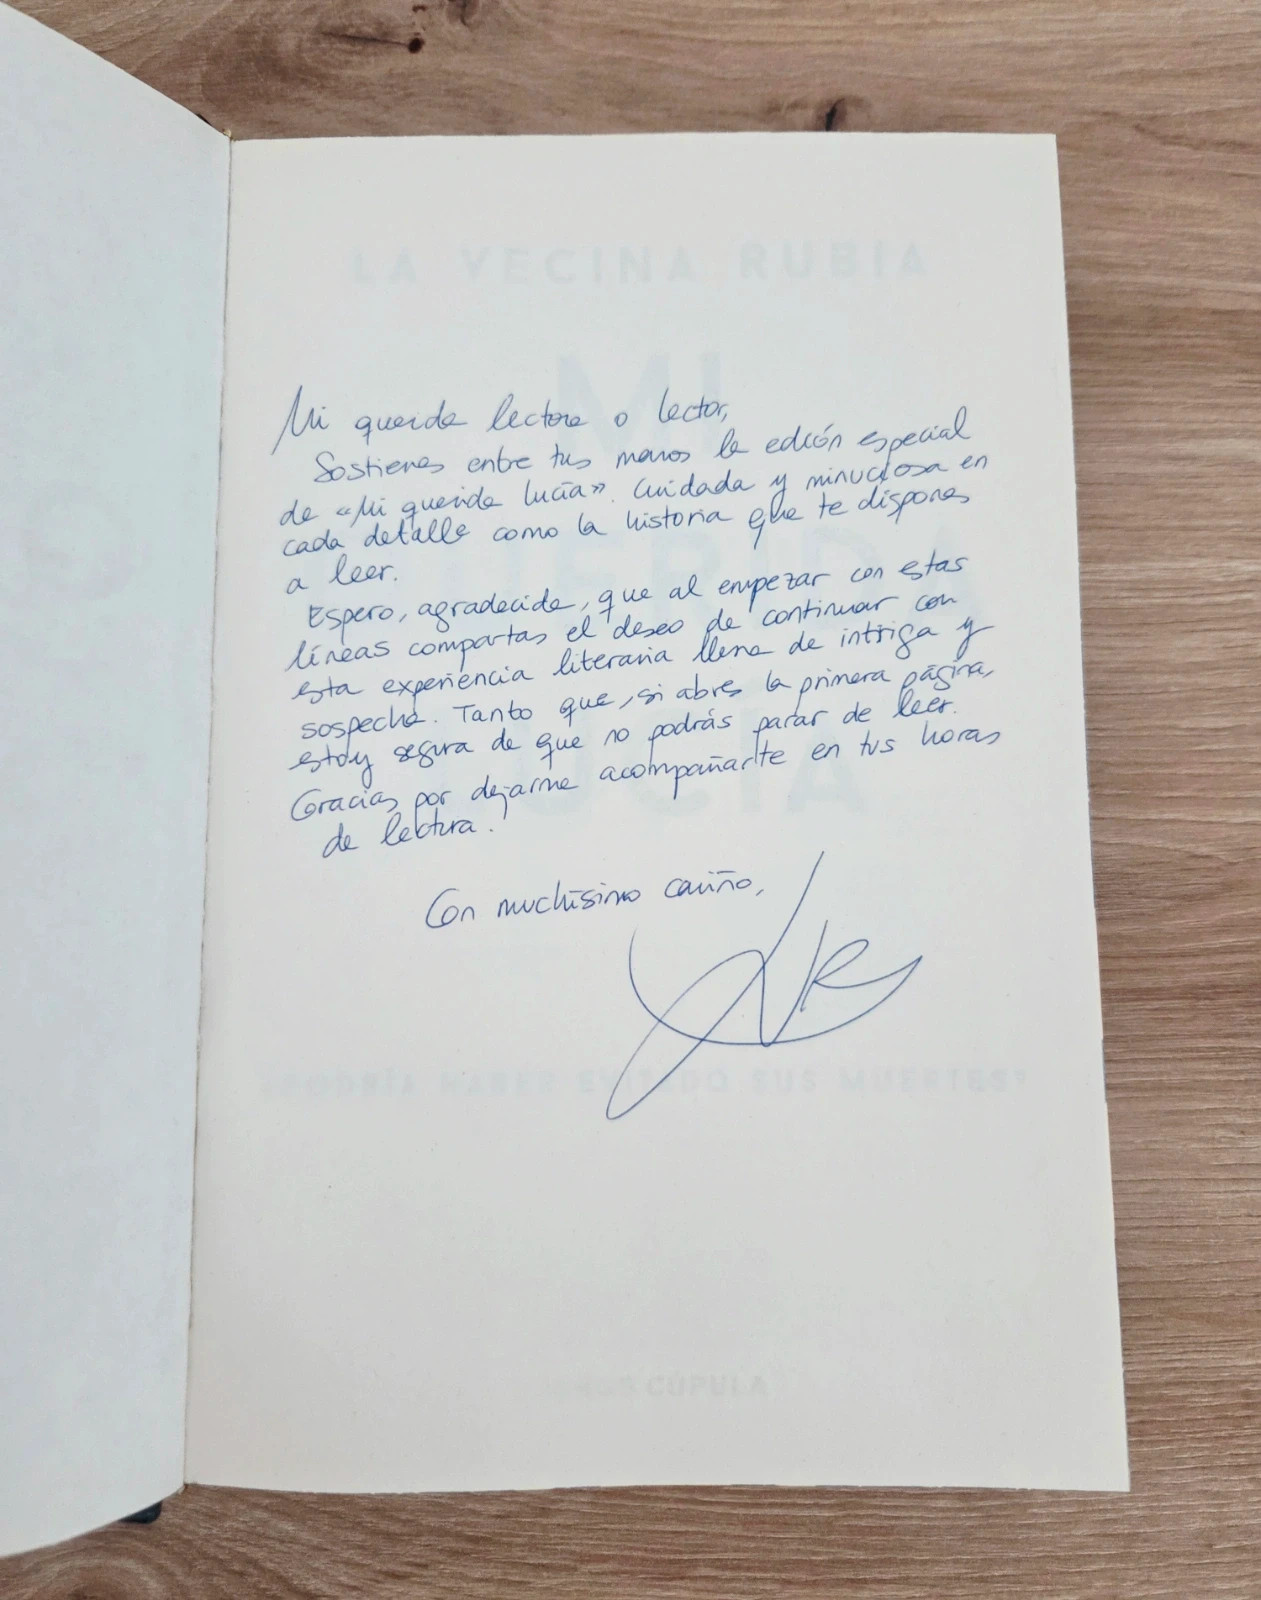 LA VECINA RUBIA
MI
Mi querida lectora o lector,
Sostienes entre tus manos la edición especial
de «Mi querida Lucía». Cuidada y minuciosa en
cada detalle como la historia que te dispones
a leer.
QUERIDA
Espero, agradecida, que al empezar con estas
líneas compartas el deseo de continuar con
esta experiencia literaria llena de intriga y
sospecha. Tanto que, si abres la primera página,
estoy segura de que no podrás parar de leer.
LUCÍA
Gracias por dejarme acompañarte en tus horas
de lectura.
Con muchísimo cariño,
¿PODRÍA HABER EVITADO SUS MUERTES?
CÚPULA